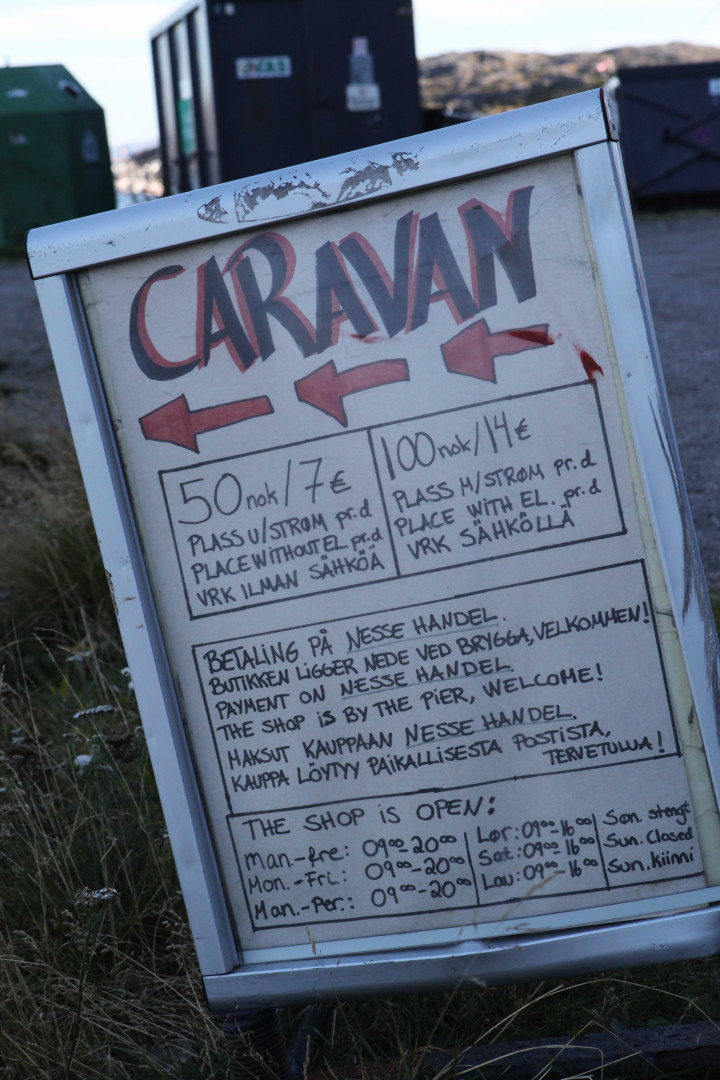 CARAVAN
50 nok/7€
PLASS U/STRØM pr.d
PLACE WITHOUT EL pr.d
VRK ILMAN SÄHKÖÄ
100 nok/14€
PLASS M/STRØM pr.d
PLACE WITH EL. pr.d
VRK SÄHKÖLLÄ
BETALING PÅ NESSE HANDEL.
BUTIKKEN LIGGER NEDE VED BRYGGA, VELKOMMEN!
PAYMENT ON NESSE HANDEL.
THE SHOP IS BY THE PIER, WELCOME!
MAKSUT KAUPPAAN NESSE HANDEL.
KAUPPA LÖYTYY PAIKALLISESTA POSTISTA,
TERVETULUA!
THE SHOP IS OPEN:
Man.-fre: 09⁰⁰-20⁰⁰
Mon.-Fri: 09⁰⁰-20⁰⁰
Man.-Per.: 09⁰⁰-20⁰⁰
Lør: 09⁰⁰-16⁰⁰
Sat: 09⁰⁰-16⁰⁰
Lau: 09⁰⁰-16⁰⁰
Søn. stengt
Sun. Closed
Sun. kiinni